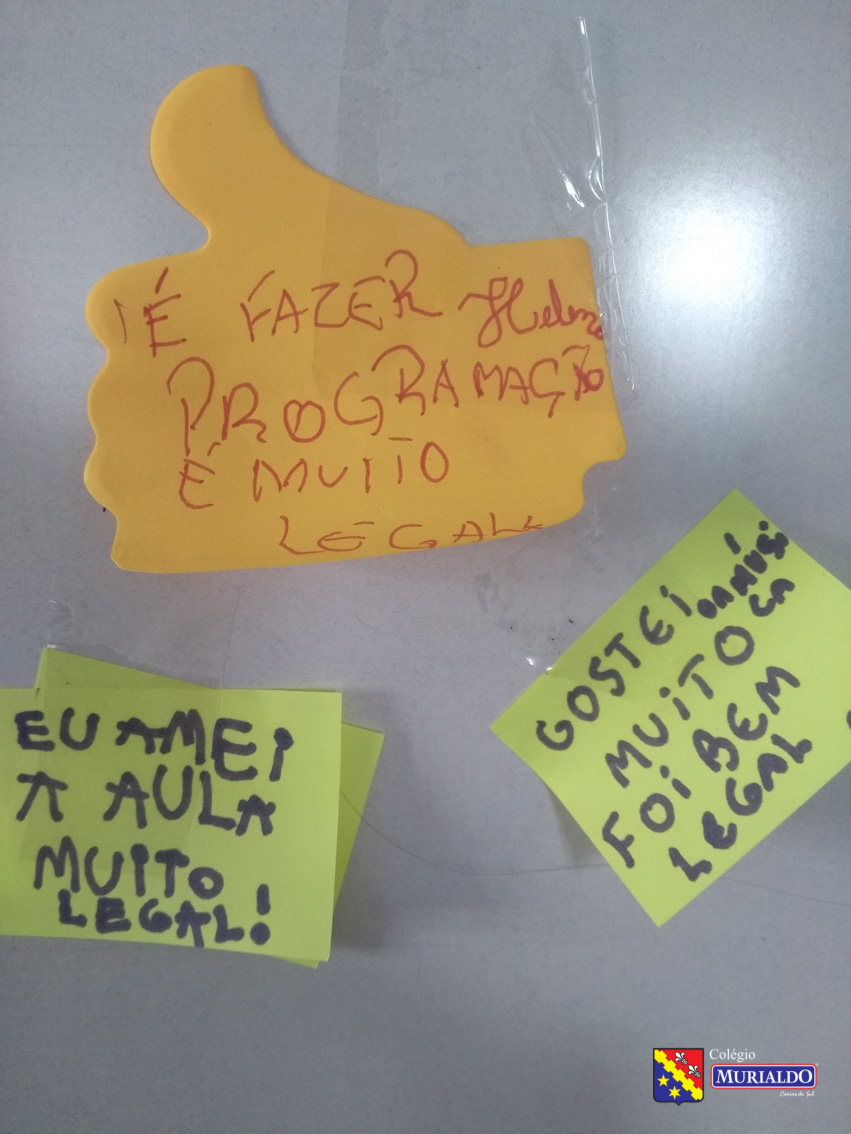 É FAZER Helena
PROGRAMAÇÃO
É MUITO
LEGAL
GOSTEI DA MÚSI
CA
MUITO
FOI BEM
LEGAL
EU AMEI
A AULA
MUITO
LEGAL!
Colégio
MURIALDO
Caxias do Sul